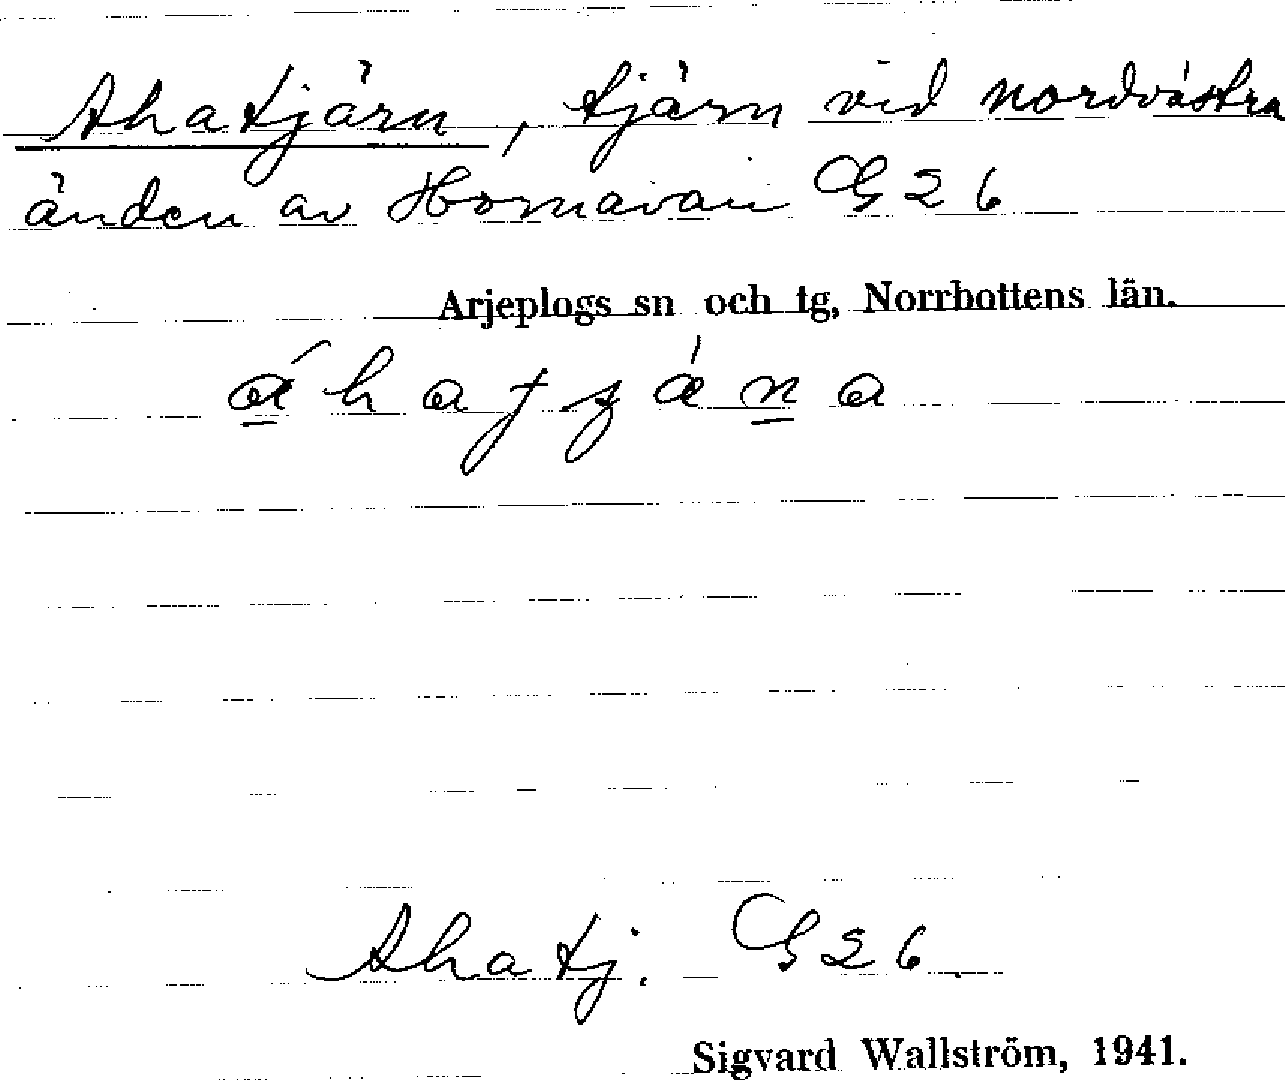 Ahatjärn, tjärn vid nordvästra
änden av Hornavan G 26
Arjeplogs sn och tg, Norrbottens län.
Ahatj. G 26
Sigvard Wallström, 1941.